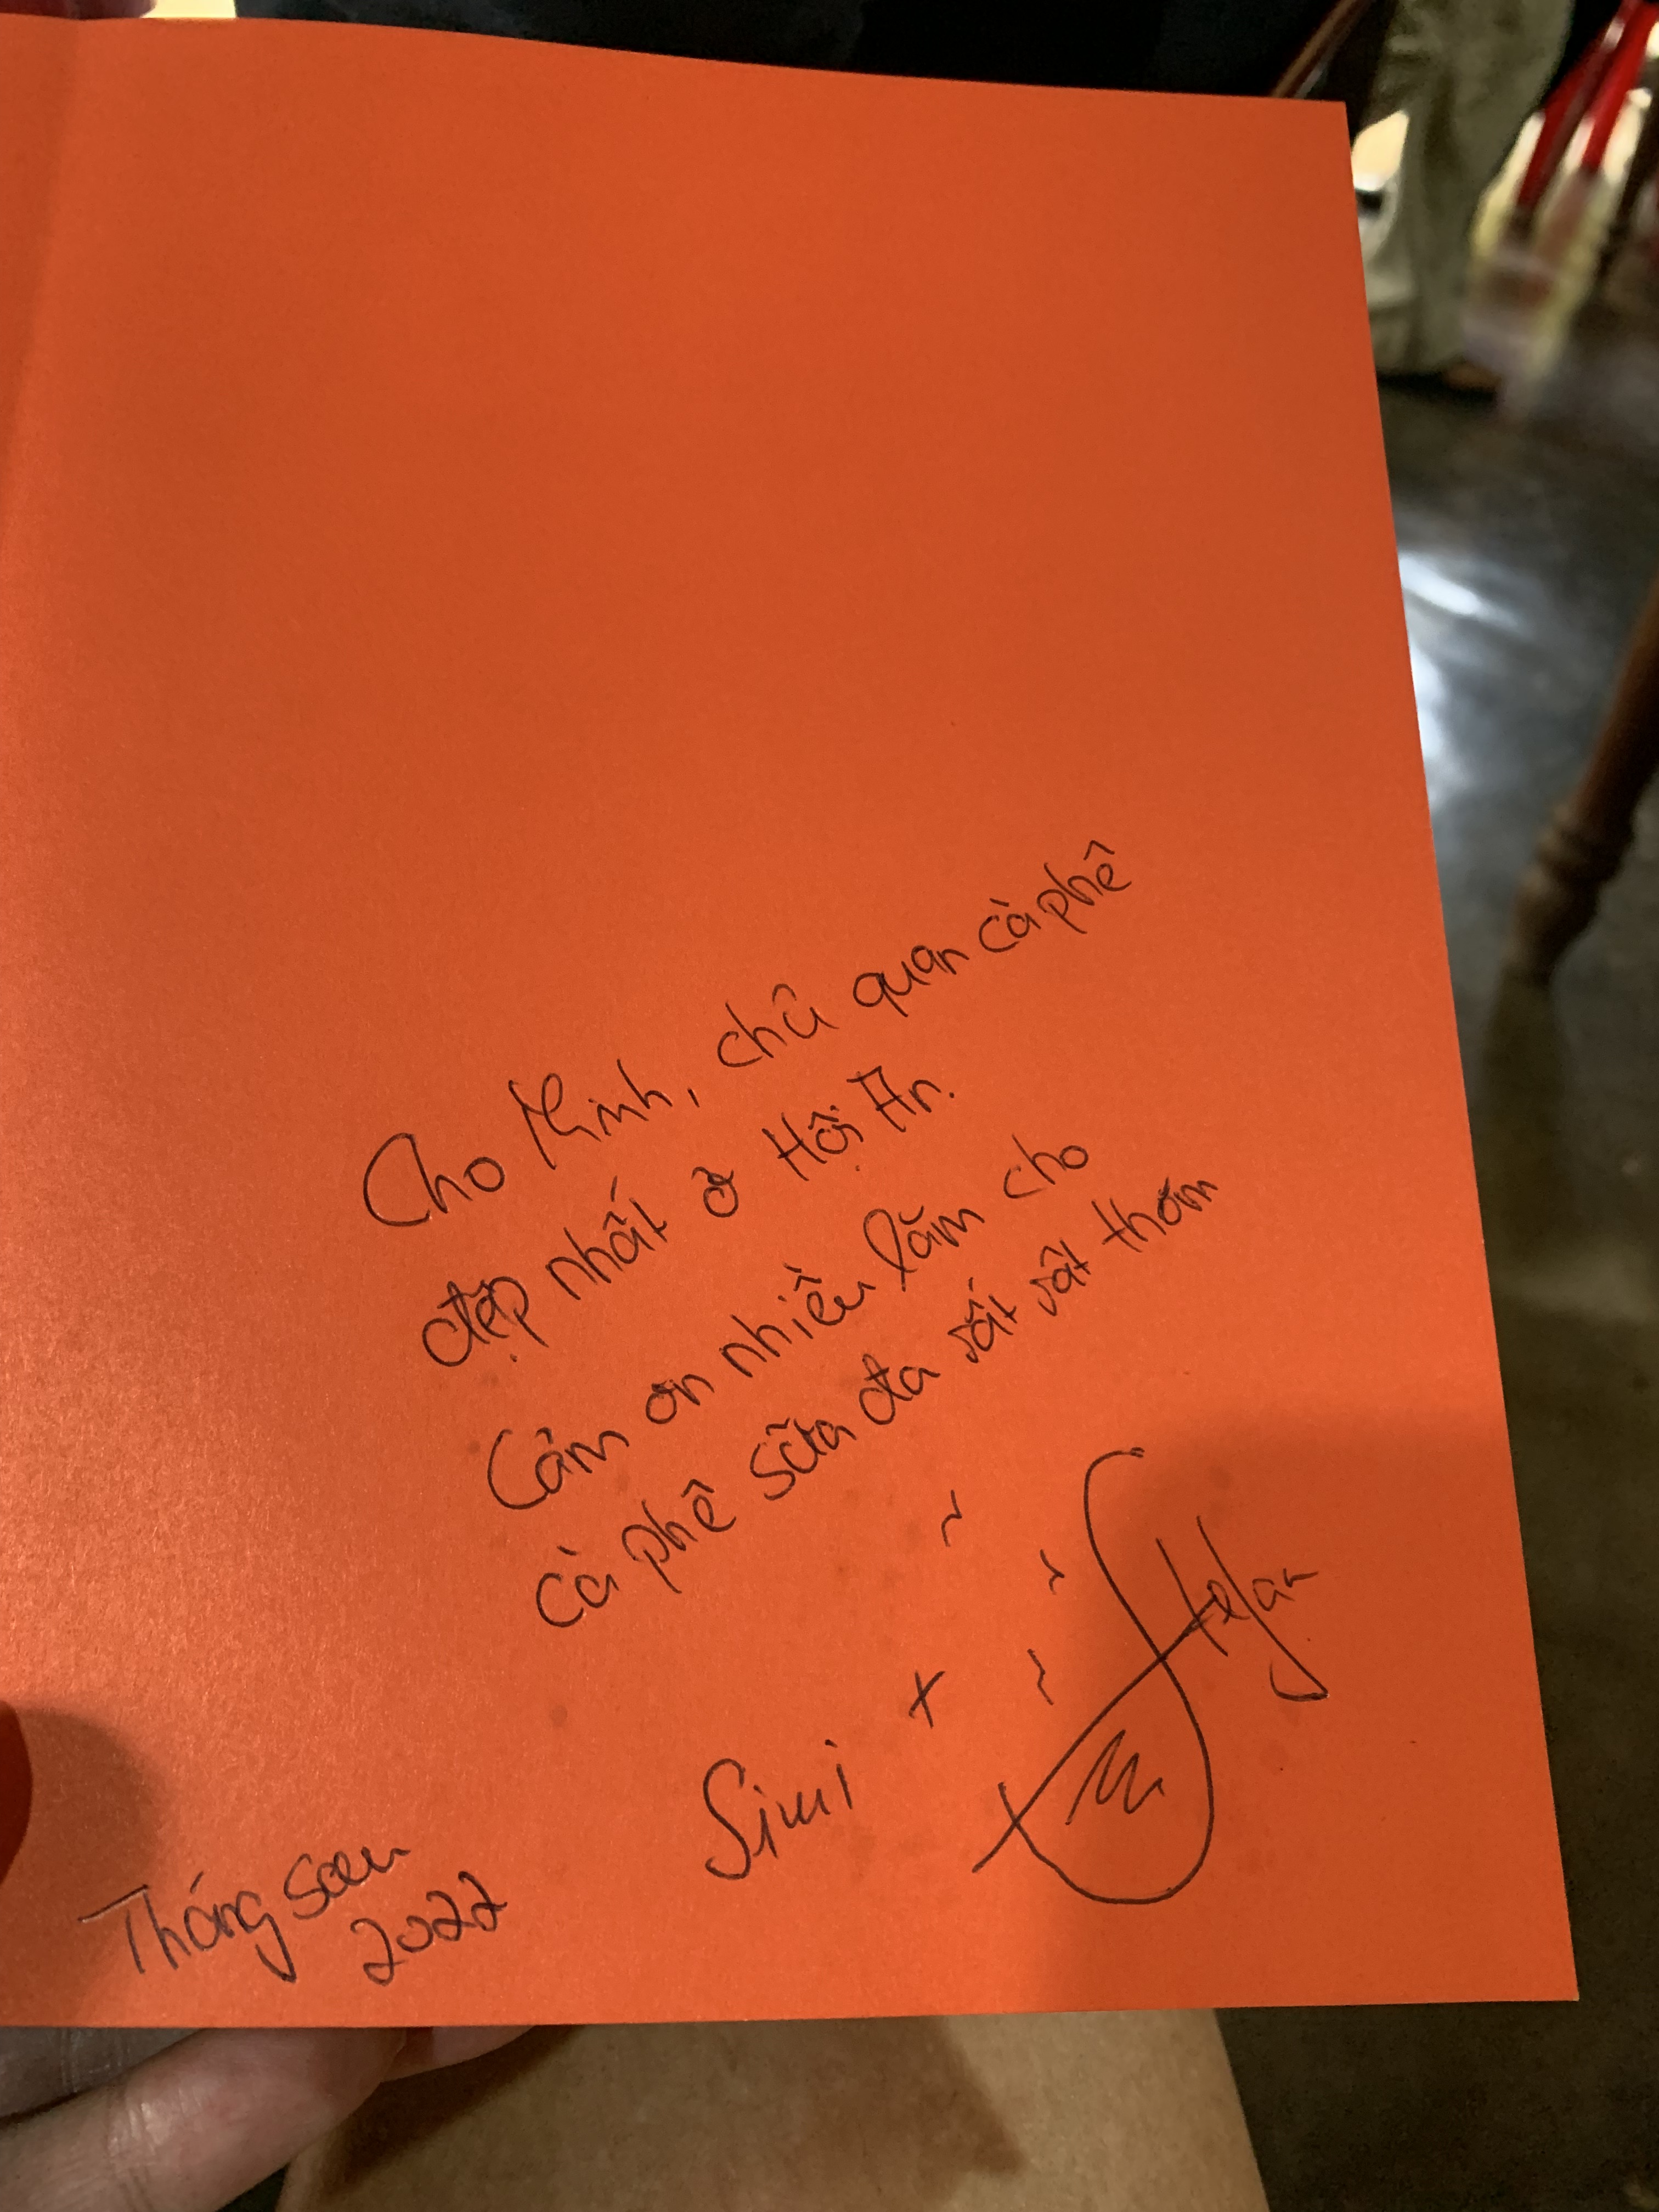 Cho Minh, chủ quan cà phê
đẹp nhất ở Hội An.
Cảm ơn nhiều lắm cho
cà phê sữa đa rất rất thơm
Simi + Stefan
Tháng sau
2022